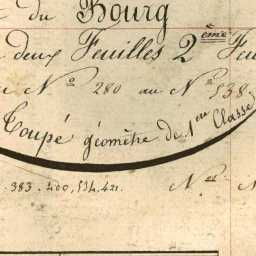 du Bourg
deux Feuilles 2ème Feu
N° 280 au N° 538
Coupé géomètre de 1ere Classe
383. 400, 534, 421. Nos